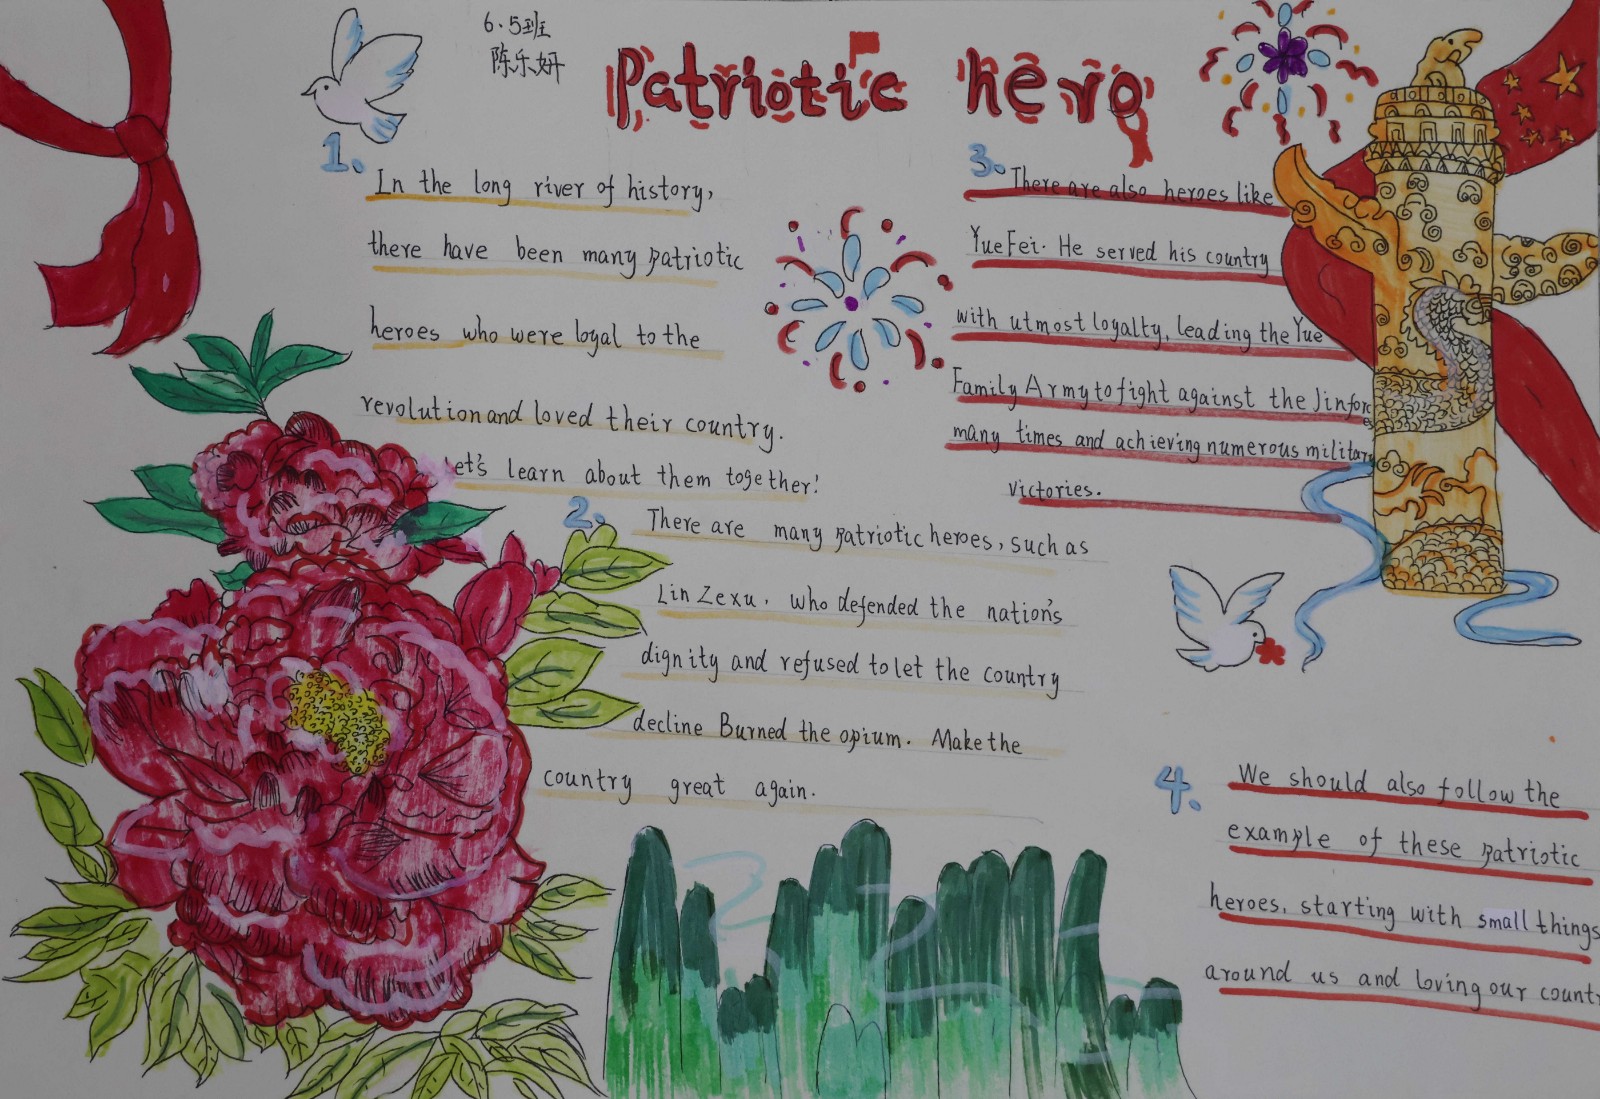 6.5班
陈乐妍
Patriotic hero
1.
In the long river of history,
there have been many patriotic
heroes who were loyal to the
revolution and loved their country.
let's learn about them together!
2.
There are many patriotic heroes, such as
Lin Zexu, who defended the nation's
dignity and refused to let the country
decline Burned the opium. Make the
country great again.
3.
There are also heroes like
Yue Fei. He served his country
with utmost loyalty, leading the Yue
Family Army to fight against the Jin forces
many times and achieving numerous military
victories.
4.
We should also follow the
example of these patriotic
heroes, starting with small things
around us and loving our countr